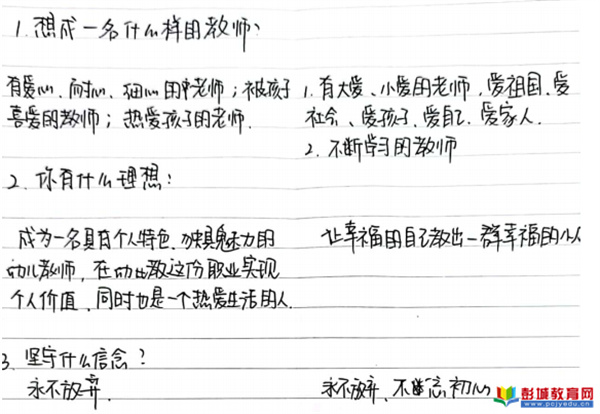 1.想成一名什么样的教师?
有爱心、耐心、细心的老师；被孩子
喜爱的教师；热爱孩子的老师.
1.有大爱、小爱的老师,爱祖国、爱
社会、爱孩子、爱自己、爱家人.
2.不断学习的教师
2.你有什么理想?
成为一名具有个人特色、独具魅力的
幼儿教师,在幼教这份职业实现
个人价值,同时也是一个热爱生活的人.
让幸福的自己教出一群幸福的小人
3.坚守什么信念?
永不放弃.
永不放弃、不断忘初心
彭城教育网
www.pcjyedu.cn